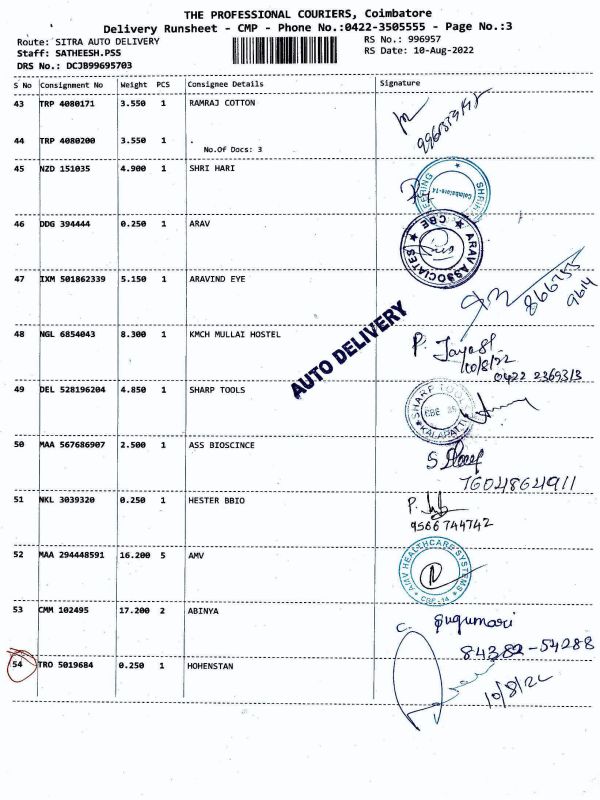 THE PROFESSIONAL COURIERS, Coimbatore
Delivery Runsheet - CMP - Phone No.:0422-3505555 - Page No.:3
Route: SITRA AUTO DELIVERY
RS No.: 996957
Staff: SATHEESH.PSS
RS Date: 10-Aug-2022
DRS No.: DCJB99695703
S No Consignment No Weight PCS Consignee Details Signature
43 TRP 4080171 3.550 1 RAMRAJ COTTON
44 TRP 4080200 3.550 1 .
No.Of Docs: 3
45 NZD 151035 4.900 1 SHRI HARI
Coimbatore-14
46 DDG 394444 0.250 1 ARAV
ARAV ASSOCIATES ★ CBE ★
47 IXM 501862339 5.150 1 ARAVIND EYE
866755
9614
48 NGL 6854043 8.300 1 KMCH MULLAI HOSTEL
AUTO DELIVERY
10/8/22
0422 2369313
49 DEL 528196204 4.850 1 SHARP TOOLS
SHARP TOOLS
KALAPATTI
50 MAA 567686907 2.500 1 ASS BIOSCINCE
7604864911
51 NKL 3039320 0.250 1 HESTER BBIO
9566744742
52 MAA 294448591 16.200 5 AMV
HEALTHCARE SYSTEMS
CBE-14
53 CMM 102495 17.200 2 ABINYA
C. Sugumari
84382-54288
54 TRO 5019684 0.250 1 HOHENSTAN
10/8/22